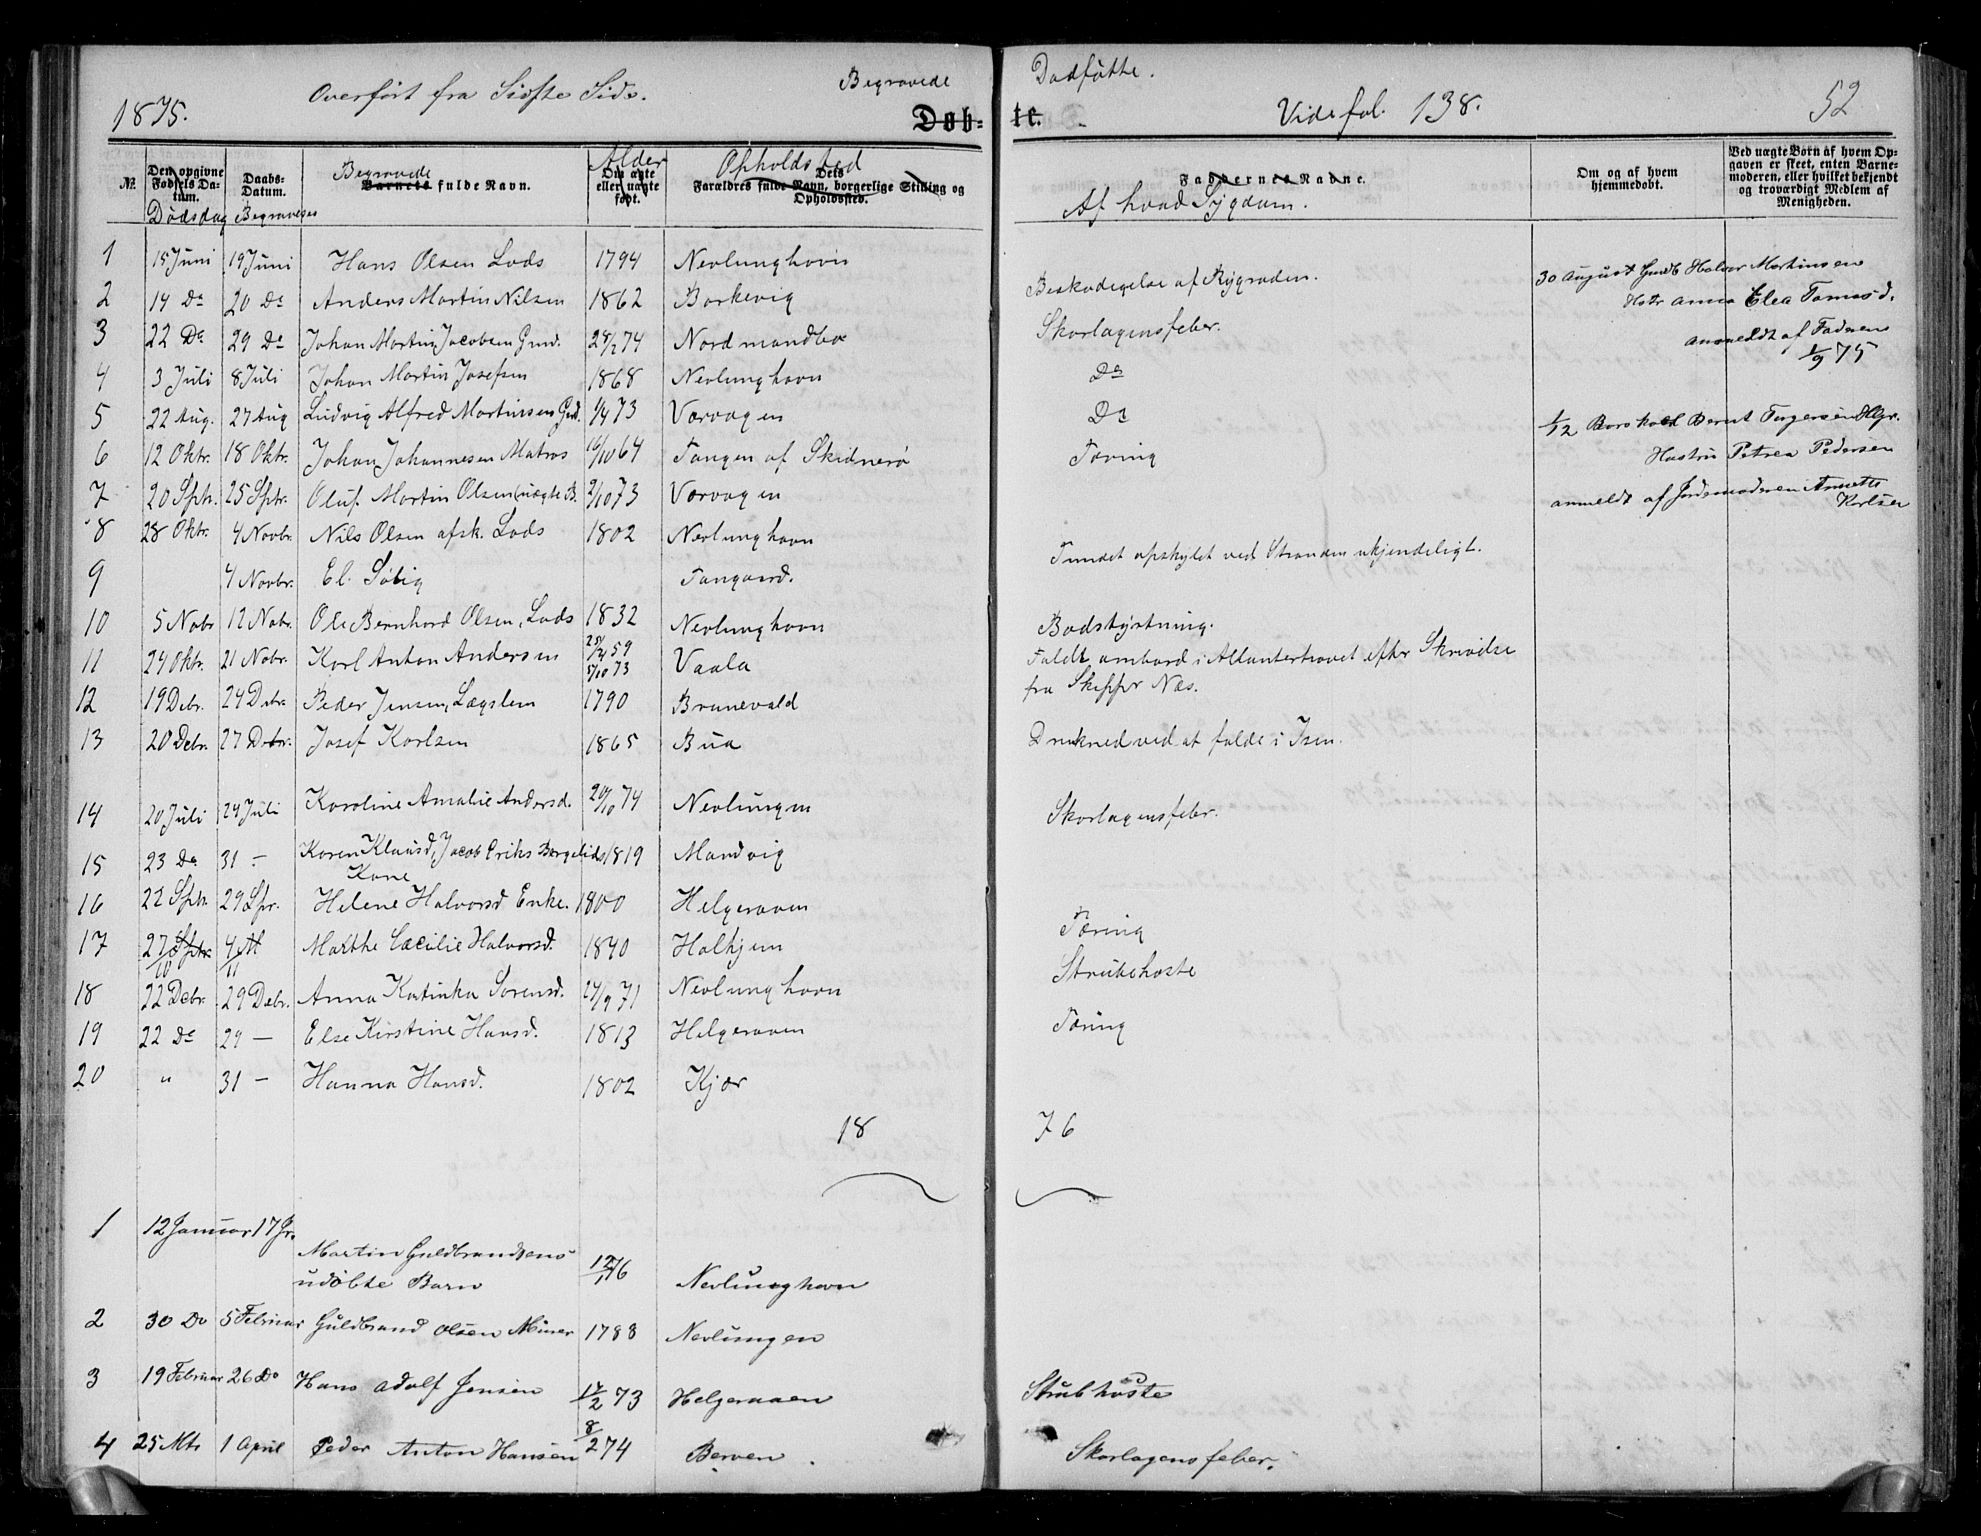 1875.
Overført fra Sidste Side.
Begravede
Døb=
Dødfødte.
te.
Vide fol. 138.
52
No.
Den opgivne Fødsels Datum.
Dødsdag
Daabs-Datum.
Begravelses
Begravede
Barnets fulde Navn.
Alder
Om ægte eller uægte født.
Opholdsted
Dets Forældres fulde Navn, borgerlige Stilling og Opholdssted.
Faddernes Navne.
Af hvad Sygdom.
Om og af hvem hjemmedøbt.
Ved uægte Børn af hvem Opgaven er skeet, enten Barnemoderen, eller hvilket bekjendt og troværdigt Medlem af Menigheden.
1 15 Juni 19 Juni Hans Olsen Lods 1794 Nevlunghavn
Beskadigelse af Rygraden.
30 August Gmdb Halvor Martinsen
2 14 Do 20 Do Anders Martin Nilsen 1862 Barkevig
Hstr Anna Elea Tomasd.
3 22 Do 29 Do Johan Martin Jacobsen Gmd. 28/2 74 Nordmandbo
Skarlagensfeber.
anmeldt af Faderen
1/9 75
4 3 Juli 8 Juli Johan Martin Josefsen 1868 Nevlunghavn
Do
5 22 Aug. 27 Aug Ludvig Alfred Martinsen Gmd. 1/4 73 Varvagen
Do
1/12 Barskald Bernt Torgersen Hlgr.
6 12 Oktr. 18 Oktr. Johan Johannesen Matros 16/10 64 Tangen af Skidnerø
Tæring
Hustru Petrea Pedersen
7 20 Sptr. 25 Sptr. Oluf Martin Olsen (uægte B. 2/10 73 Varvagen
anmeldt af Jordemoderen Annette Karlsen
8 28 Oktr. 4 Novbr. Nils Olsen afsk. Lods 1802 Nevlunghavn
9 4 Novbr. El. Søbig Fangaard.
Fundet opskyllet ved Stranden ukjendeligt.
10 5 Nobr 12 Nobr. Ole Bernhard Olsen, Lods 1832 Nevlunghavn
Badstyrtning.
11 24 Oktr. 21 Nobr. Karl Anton Andersen 25/4 59 5/10 73 Vaala
Faldt ombord i Atlanterhavet efter Skrivelse
fra Skipper Næs.
12 19 Debr. 24 Debr. Peder Jensen, Lægslem 1790 Brunevald
13 20 Debr. 27 Debr. Josef Karlsen 1865 Bua
Drukned ved at falde i Isen.
14 20 Juli 24 Juli Karoline Amalie Andersd. 20/10 74 Nevlungen
Skarlagensfeber.
15 23 Do 31 – Karen Klausd, Jacob Eriks Bergelids 1819 Mandvig
Kone
16 22 Sptr. 29 Spr. Helene Halvorsd Enke. 1800 Helgeraaen
Tæring
17 27/10 Sptr. 4/11 Marthe Cæcilie Halvorsd. 1840 Halhjem
Strubehoste
18 22 Debr. 29 Debr. Anna Katinka Sørensd. 27/9 71 Nevlunghavn
19 22 Do 29 – Else Kirstine Hansd. 1813 Helgeraaen
Tæring
20 " 31 – Hanna Hansd. 1802 Kjær
18 76
1 12 Januar 17 Jr.
Martin Guldbrandsens
udøbte Barn 12/1 76 Nevlunghavn
2 30 Do 5 Februar Guldbrand Olsen Miner 1788 Nevlungen
3 19 Februar 26 Do Hans Adolf Jensen 17/2 73 Helgeraaen
Strubhoste
4 25 Mts 1 April Peder Anton Hansen 8/2 74 Berven.
Skarlagensfeber.